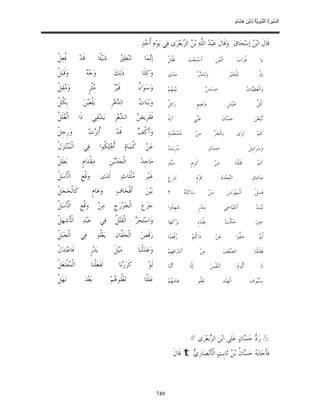 السِّيرَةُ النَّبَوِيَّةُ لابْنِ هِشَامٍ
قَالَ ابْنُ إسْحَاقَ وَقَالَ عَبْدُ اللَّهِ بْنُ الزِّبَعْرَى فِي يَوْمِ أُحُدٍ
يَا غُرَابَ الْبَيْنِ أَسْمَعْتَ فَقُلْ إنَّمَا تَنْطِقُ شَيْئًا قَدْ فُعِلْ
إنَّ لِلْخَيْرِ وَلِلشَّرِّ مَدَى وَكِلَا ذَلِكَ وَجْهٌ وَقَبَلْ
وَالْعَطِيَّاتُ خِسَاسٌ بَيْنَهُمْ وَسَوَاءٌ قَبْرُ مُثْرٍ وَمُقِلْ
كُلُّ عَيْشٍ وَنَعِيمٍ زَائِلٌ وَبَنَاتُ الدَّهْرِ يَلْعَبْنَ بِكُلْ
أَبْلِغَنْ حَسَّانَ عَنِّي آيَةً فَقَرِيضُ الشِّعْرِ يَشْفِي ذَا الْغُلَلْ
كَمْ تَرَى بِالْجَرِّ مِنْ جُمْجُمَةٍ وَأَكُفٍّ قَدْ أُتِرَّتْ وَرِجِلْ
وَسَرَابِيلَ حِسَانٍ سُرِيَتْ عَنْ كُمَاةٍ أُهْلِكُوا فِي الْمُنْتَزَلْ
كَمْ قَتَلْنَا مِنْ كَرِيمٍ سَيِّدٍ مَاجِدِ الْجَدَّيْنِ مِقْدَامٍ بَطَلْ
صَادِقِ النَّجْدَةِ قَرْمٍ بَارِعٍ غَيْرِ مُلْتَاثٍ لَدَى وَقْعِ الْأَسَلْ
فَسَلْ الْمِهْرَاسَ مَنْ سَاكِنُهُ ؟ بَيْنَ أَقْحَافٍ وَهَامٍ كَالْحَجَلْ
لَيْتَ أَشْيَاخِي بِبَدْرٍ شَهِدُوا جَزَعَ الْخَزْرَجِ مِنْ وَقْعِ الْأَسَلْ
حِينَ حَكَّتْ بِقُبَاءٍ بَرْكَهَا وَاسْتَحَرَّ الْقَتْلُ فِي عَبْدِ الْأَشَهَلْ
ثُمَّ خَفُّوا عَنْ ذَاكُمْ رُقَّصًا رَقَصَ الْحَفَّانِ يَعْلُو فِي الْجَبَلْ
فَقَتَلْنَا الضِّعْفَ مِنْ أَشْرَافِهِمْ وَعَدَلْنَا مَيْلَ بَدْرٍ فَاعْتَدَلْ
لَا أَلُومُ النَّفْسَ إلَّا أَنَّنَا لَوْ كَرَرْنَا لَفَعَلْنَا الْمُفْتَعَلْ
بِسُيُوفِ الْهِنْدِ تَعْلُو هَامَهُمْ عَلَلًا تَعْلُوهُمْ بَعْدَ نَهَلْ
رَدُّ حَسَّانٍ عَلَى ابْنِ الزِّبَعْرَى
فَأَجَابَهُ حَسَّانُ بْنُ ثَابِتٍ الْأَنْصَارِيُّ t قَالَ
749